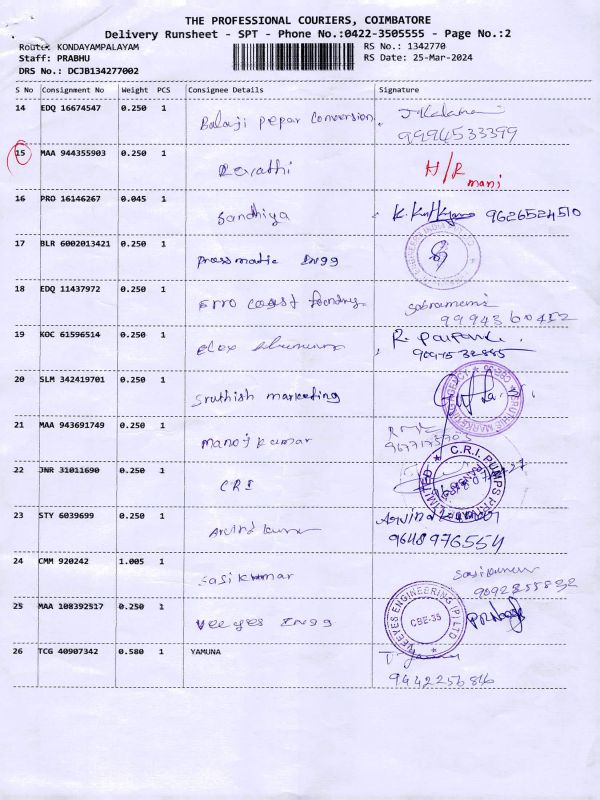 THE PROFESSIONAL COURIERS, COIMBATORE
Delivery Runsheet - SPT - Phone No.:0422-3505555 - Page No.:2
Route: KONDAYAMPALAYAM
RS No.: 1342770
Staff: PRABHU
RS Date: 25-Mar-2024
DRS No.: DCJB134277002
S No Consignment No Weight PCS Consignee Details Signature
14 EDQ 16674547 0.250 1
Balaji pepar conversion
9994533399
15 MAA 944355903 0.250 1
Revathi H/R
mani
16 PRO 16146267 0.045 1
Sandhiya 9626524510
17 BLR 6002013421 0.250 1
pressmatic Engg
18 EDQ 11437972 0.250 1
foundry
19 KOC 61596514 0.250 1
R.
20 SLM 342419701 0.250 1
Sruthish marketing
21 MAA 943691749 0.250 1
Manoj kumar
22 JNR 31011690 0.250 1
C.R.I. PUMPS
LIMITED
CRI
23 STY 6039699 0.250 1
Arvind kumar Arvind kumar
9648976554
24 CMM 920242 1.005 1
Sasi kumar Sasikumar
25 MAA 108392517 0.250 1
VEEYES ENGINEERING (P) LTD
CBE-35
Veeyes Engg
26 TCG 40907342 0.580 1 YAMUNA
9442256816